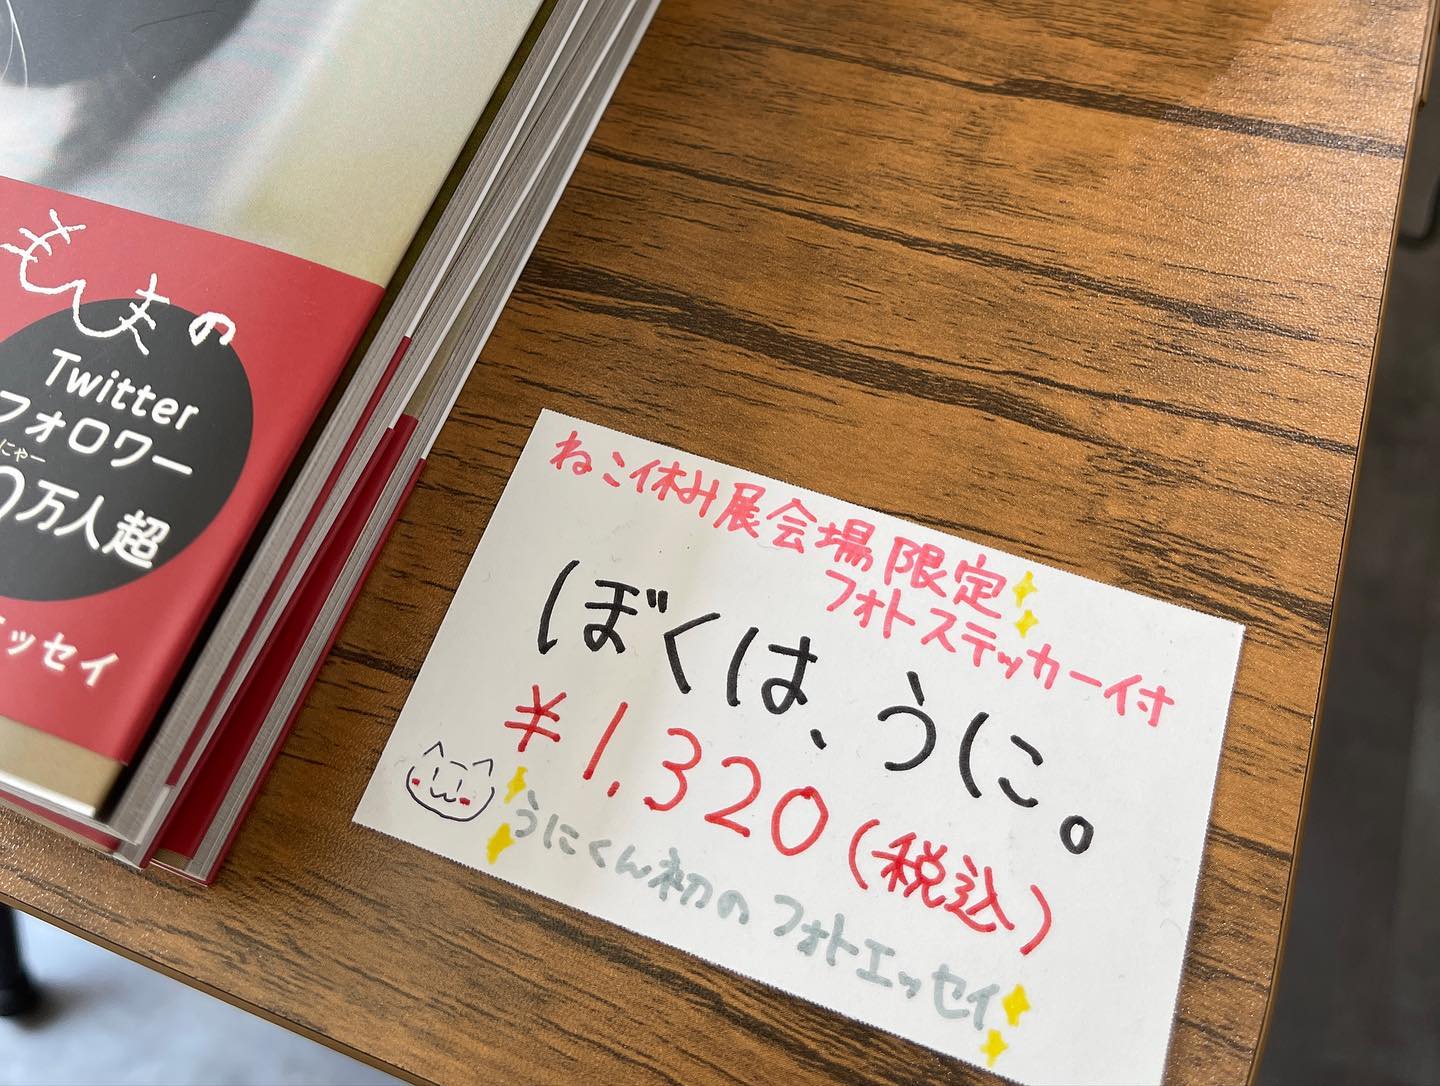 の
Twitter
フォロワー
にゃー
万人超
ッセイ
ねこ休み展会場限定
フォトステッカー付
ぼくは、うに。
¥1,320(税込)
うにくん初のフォトエッセイ